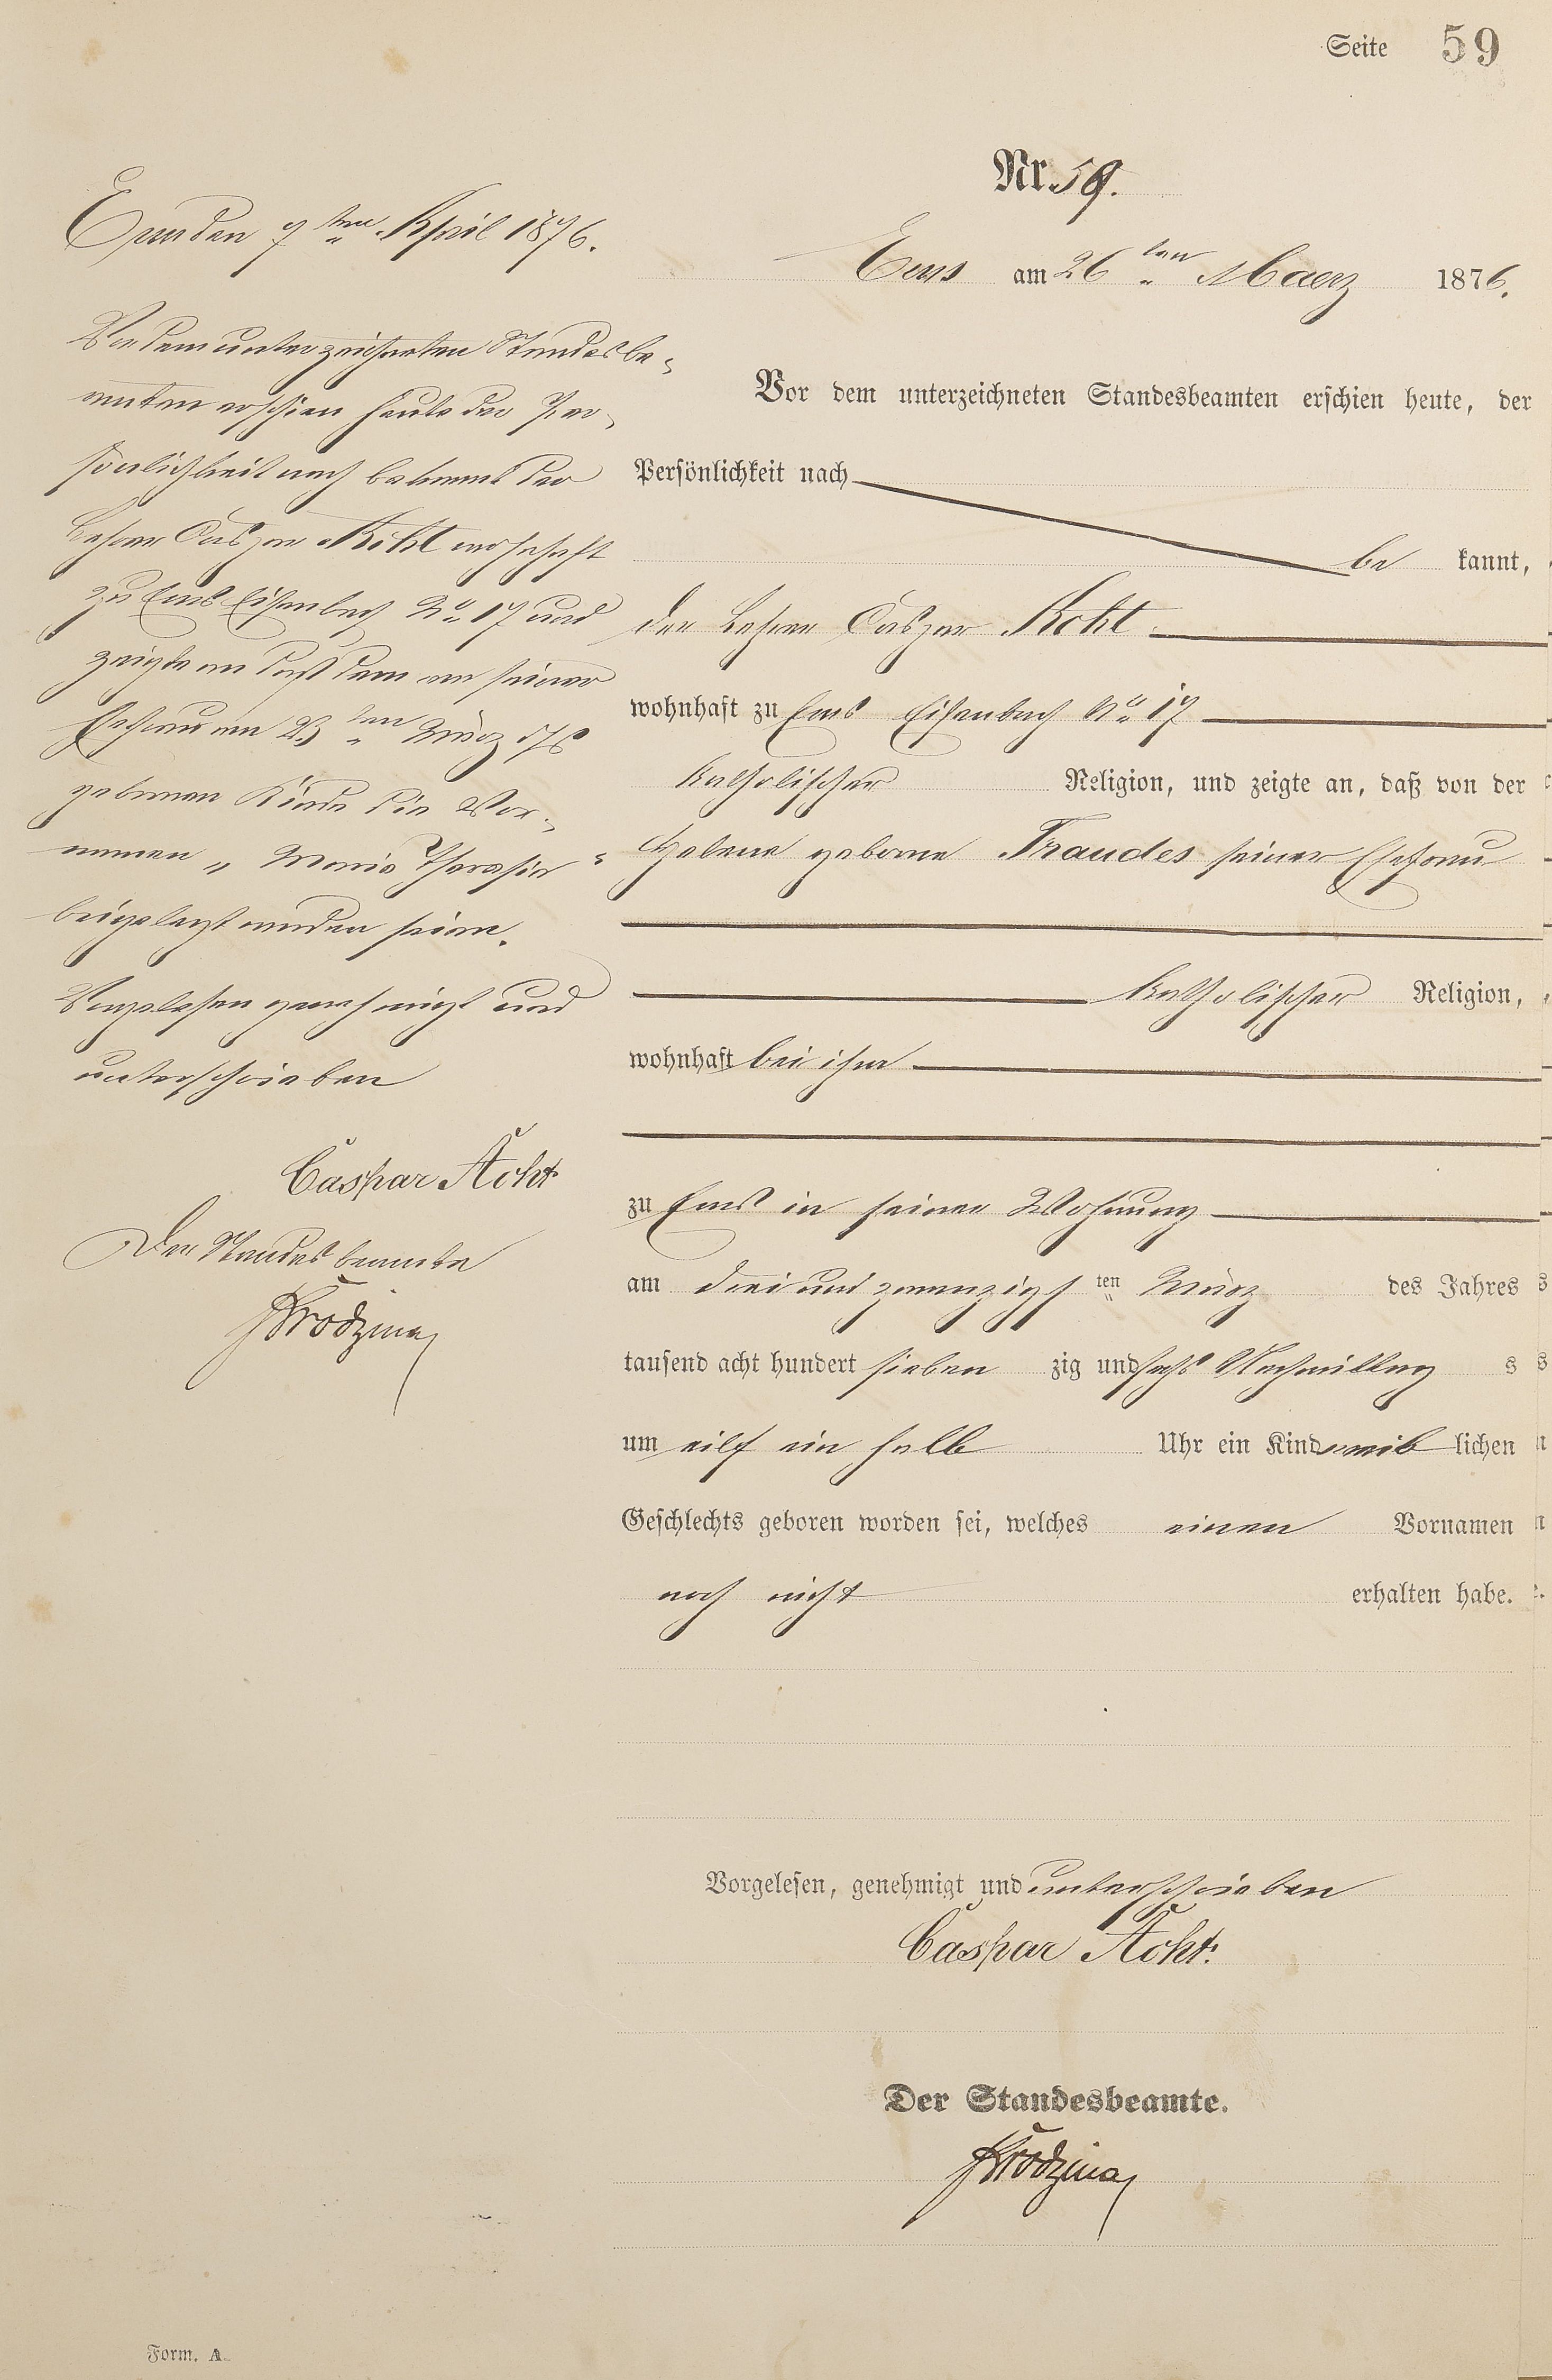 Seite 59
Nr. 59.
Ems am 26ten Maerz 1876.
Vor dem unterzeichneten Standesbeamten erschien heute, der
Persönlichkeit nach
be kannt,
der Lehrer Caspar Acht.
wohnhaft zu Ems Eisenbach No 17
katholischer Religion, und zeigte an, daß von der
Helene geborne Fraudes seiner Ehefrau
katholischer Religion,
wohnhaft bei ihm
zu Ems in seiner Wohnung
am drei und zwanzigsten März des Jahres
tausend acht hundert sieben zig und sechs Nachmittag s
um eilf ein halb Uhr ein Kind weib lichen
Geschlechts geboren worden sei, welches einen Vornamen
noch nicht erhalten habe.
Vorgelesen, genehmigt und unterschrieben
Caspar Acht.
Der Standesbeamte.
Ems den 7ten April 1876.
Vor dem unterzeichneten Standesbe-
amten erschien heute der Per-
sönlichkeit nach bekannt der
Lehrer Caspar Acht wohnhaft
zu Ems Eisenbach No 17 und
zeigte an daß dem von seiner
Ehefrau am 23ten März
gebornen Kinde die Vor-
namen "Maria Theresia"
beigelegt worden seien.
Vorgelesen genehmigt und
unterschrieben
Caspar Acht
Der Standesbeamte
Form. A.